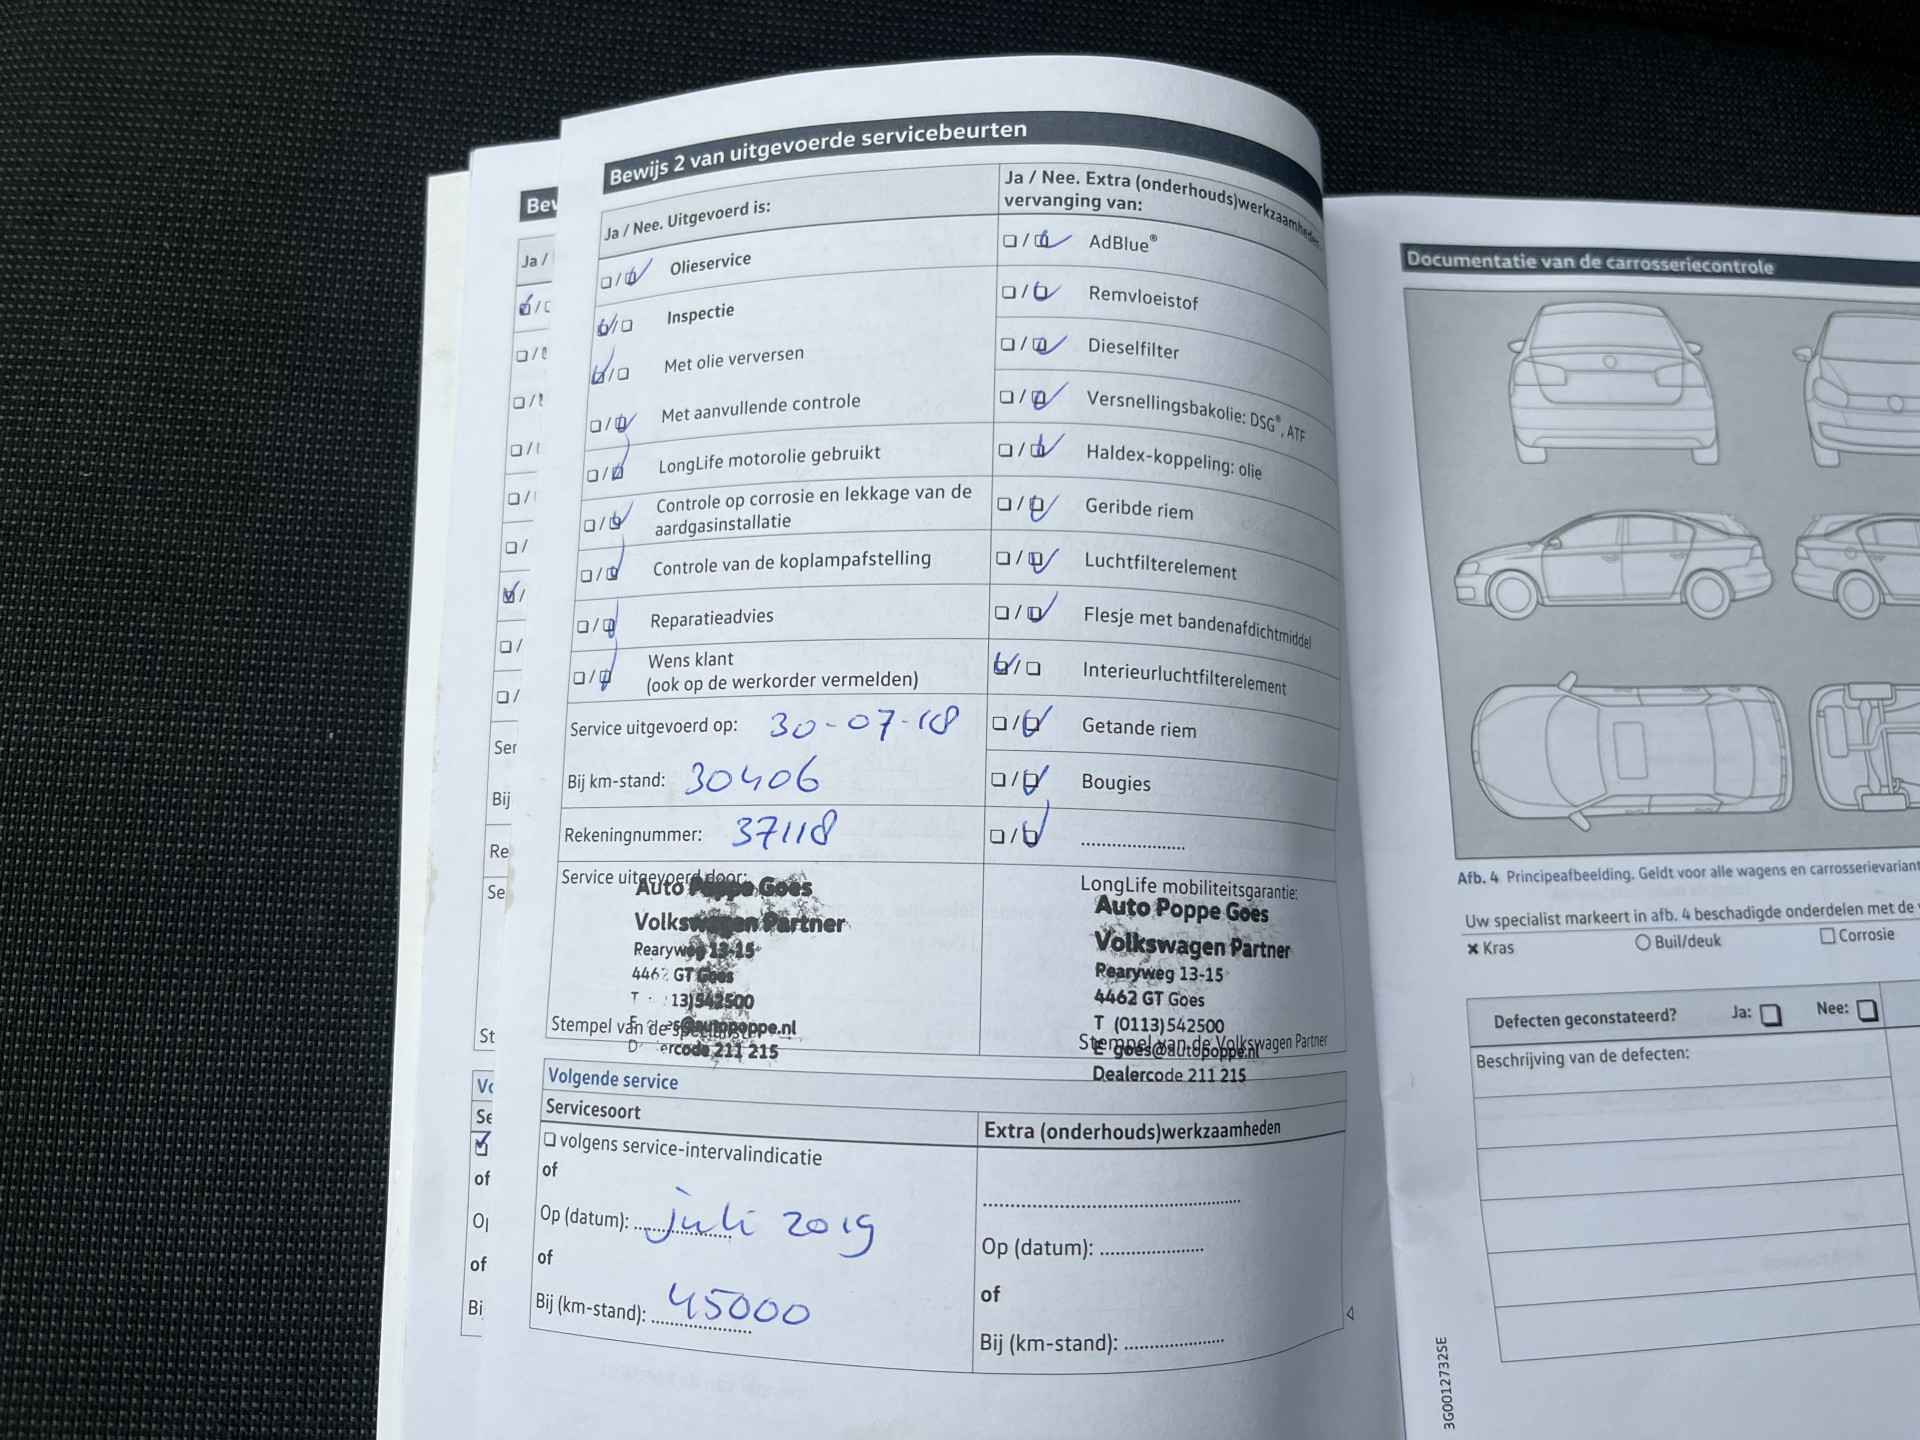 Bewijs 2 van uitgevoerde servicebeurten
Ja / Nee. Uitgevoerd is:
Olieservice
Inspectie
Met olie verversen
Met aanvullende controle
LongLife motorolie gebruikt
Controle op corrosie en lekkage van de
aardgasinstallatie
Controle van de koplampafstelling
Reparatieadvies
Wens klant
(ook op de werkorder vermelden)
Service uitgevoerd op: 30-07-18
Bij km-stand: 30406
Rekeningnummer: 37118
Service uitgevoerd door:
Auto Poppe Goes
Volkswagen Partner
Rearyweg 13-15
4462 GT Goes
T 13)542500
@autopoppe.nl
Stempel van de specialist
ercode 211 215
Ja / Nee. Extra (onderhouds)werkzaamheden,
vervanging van:
AdBlue®
Remvloeistof
Dieselfilter
Versnellingsbakolie: DSG®, ATF
Haldex-koppeling: olie
Geribde riem
Luchtfilterelement
Flesje met bandenafdichtmiddel
Interieurluchtfilterelement
Getande riem
Bougies
....................
LongLife mobiliteitsgarantie:
Auto Poppe Goes
Volkswagen Partner
Rearyweg 13-15
4462 GT Goes
T (0113)542500
Stempel van de Volkswagen Partner
E goes@autopoppe.nl
Dealercode 211 215
Volgende service
Servicesoort
volgens service-intervalindicatie
of
Op (datum): juli 2019
of
Bij (km-stand): 45000
Extra (onderhouds)werkzaamheden
Op (datum): ....................
of
Bij (km-stand): ....................
Bev
Ja /
Ser
Bij
Re
Se
St
Vo
Se
of
Op
of
Bij
Documentatie van de carrosseriecontrole
Afb. 4 Principeafbeelding. Geldt voor alle wagens en carrosserievariant
Uw specialist markeert in afb. 4 beschadigde onderdelen met de v
× Kras
Buil/deuk
Corrosie
Defecten geconstateerd? Ja: Nee:
Beschrijving van de defecten:
3G0012732SE